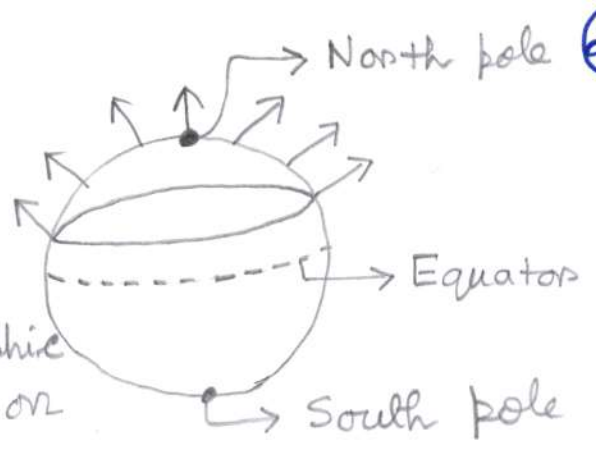 North pole
Equator
phic
on
South pole